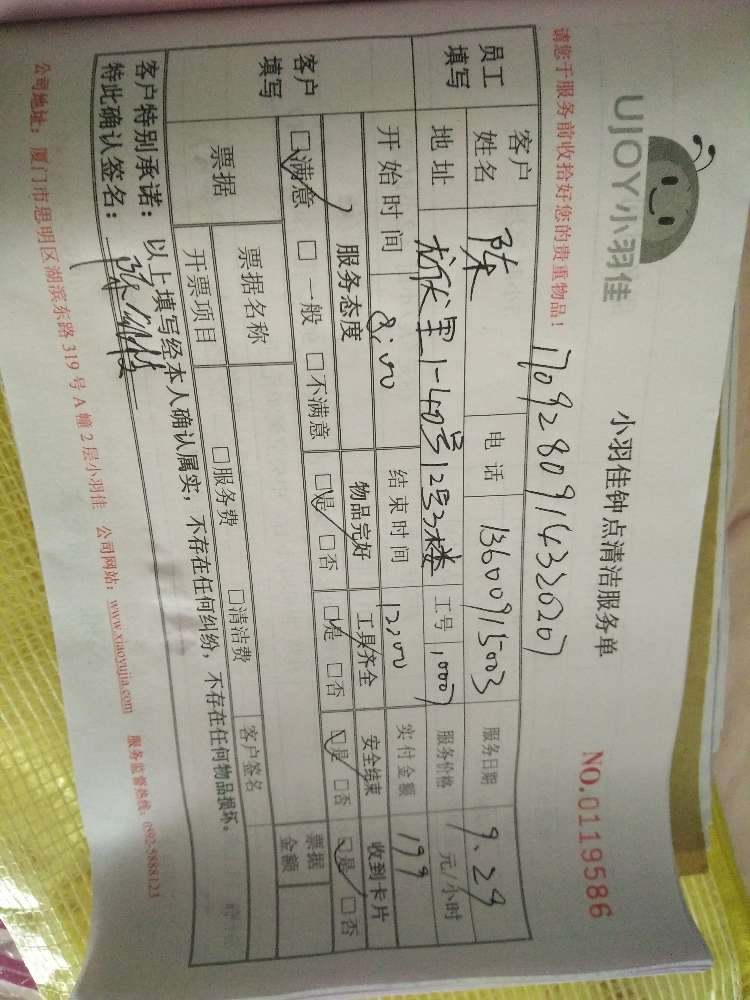 UJOY小羽佳
小羽佳钟点清洁服务单
NO.0119586
请您于服务前收拾好您的贵重物品！
17092809143 20207
员工填写
客户姓名 陈 电话 13600915003 服务日期 9.29
地址 1-40号12号3楼 工号 1,0007 服务价格 元/小时
开始时间 8:00 结束时间 12:00 实付金额 199
客户填写
服务态度 物品完好 工具齐全 安全结束 收到卡片
□满意 □一般 □不满意 □是 □否 □是 □否 □是 □否 □是 □否
票据 票据名称 客户签名 票据金额
开票项目 □服务费 □清洁费
客户特别承诺：以上填写经本人确认属实，不存在任何纠纷，不存在任何物品损坏。
特此确认签名：陈
公司地址：厦门市思明区湖滨东路319号A幢2层小羽佳 公司网站：www.xiaoyujia.com 服务监督热线：0592-5888123